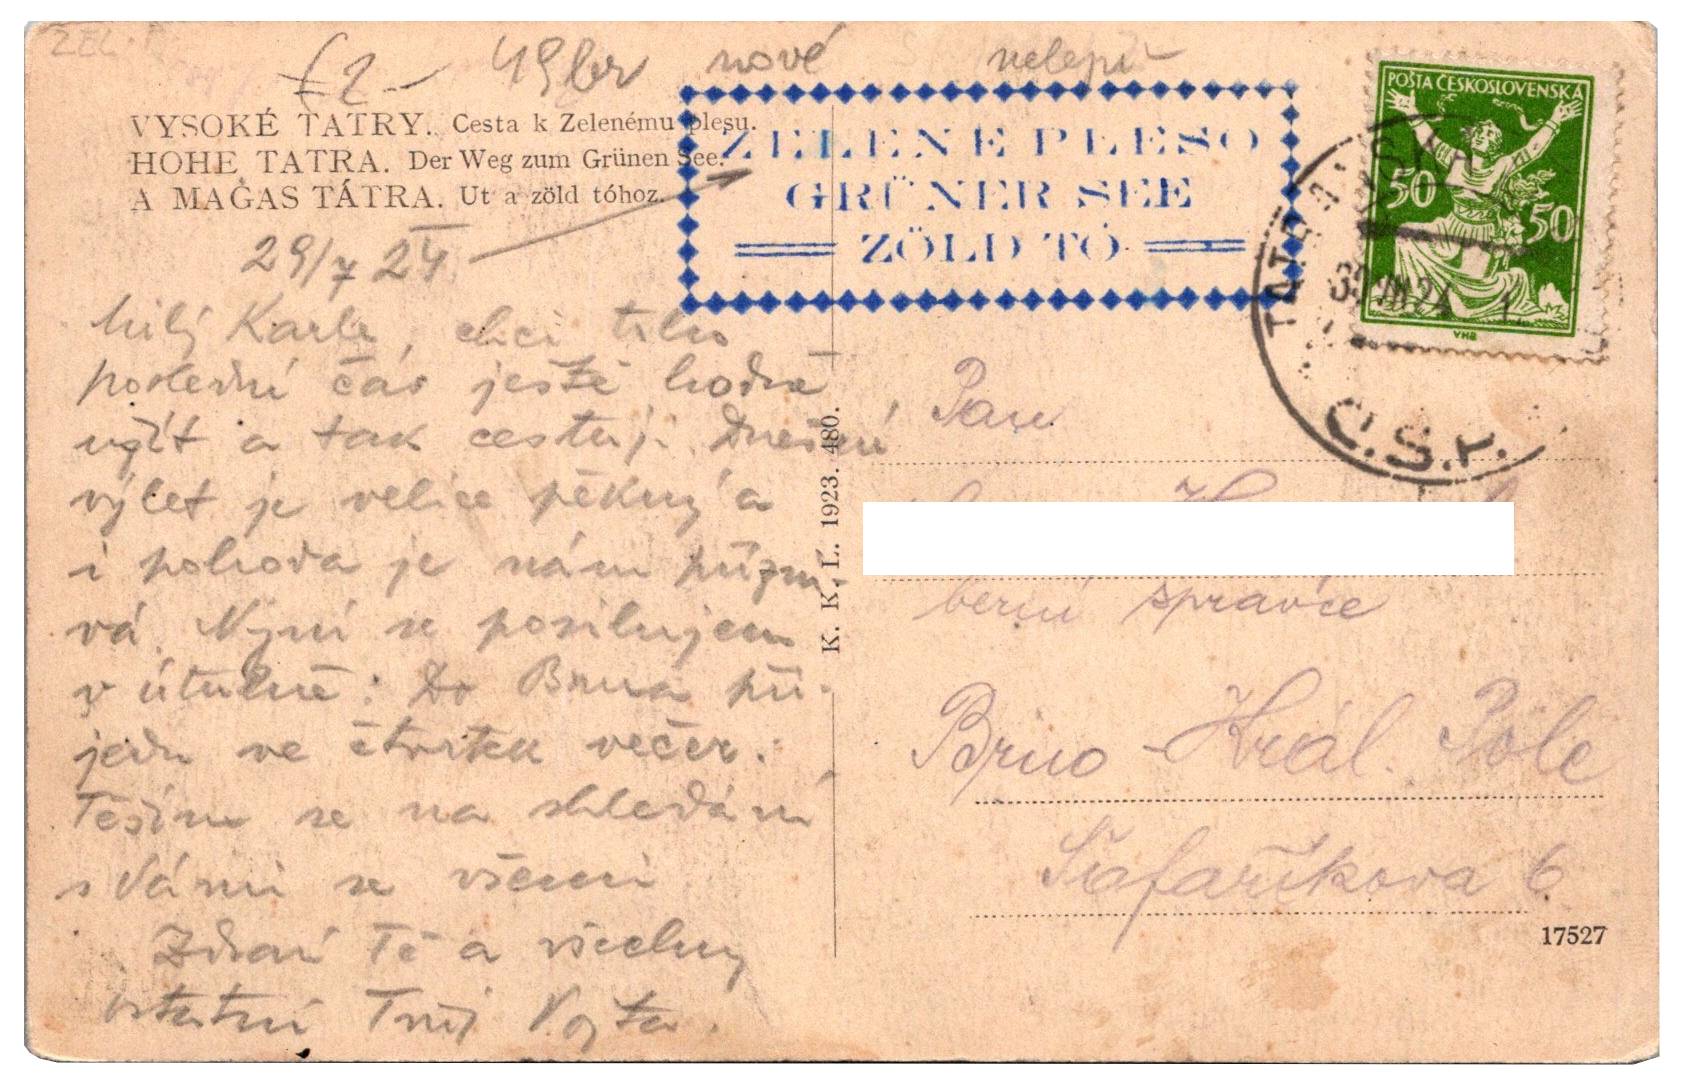 ZEL. P
£2-
49br
nové
nelepit
VYSOKÉ TATRY. Cesta k Zelenému plesu.
HOHE TATRA. Der Weg zum Grünen See.
A MAGAS TÁTRA. Ut a zöld tóhoz.
ZELENÉ PLESO
GRÜNER SEE
ZÖLD TÓ
POŠTA ČESKOSLOVENSKÁ
50
50
VHB
Č.S.P.
29/7 24
Milý Karle, chci tuto
poslední čás ještě hodně
užít a tak cestuji. Dnešní
výlet je velice pěkný a
i pohoda je nám přízni-
vá. Nyní se posilujem
v útulně. Do Brna při-
jedu ve čtvrtek večer.
Těším se na shledání
s Vámi se všemi
Zdraví Tě a všechny
ostatní Tvůj Vojta.
K. K. L. 1923. 480.
Pan
berní správce
Brno - Král. Pole
Šafaříkova 6
17527